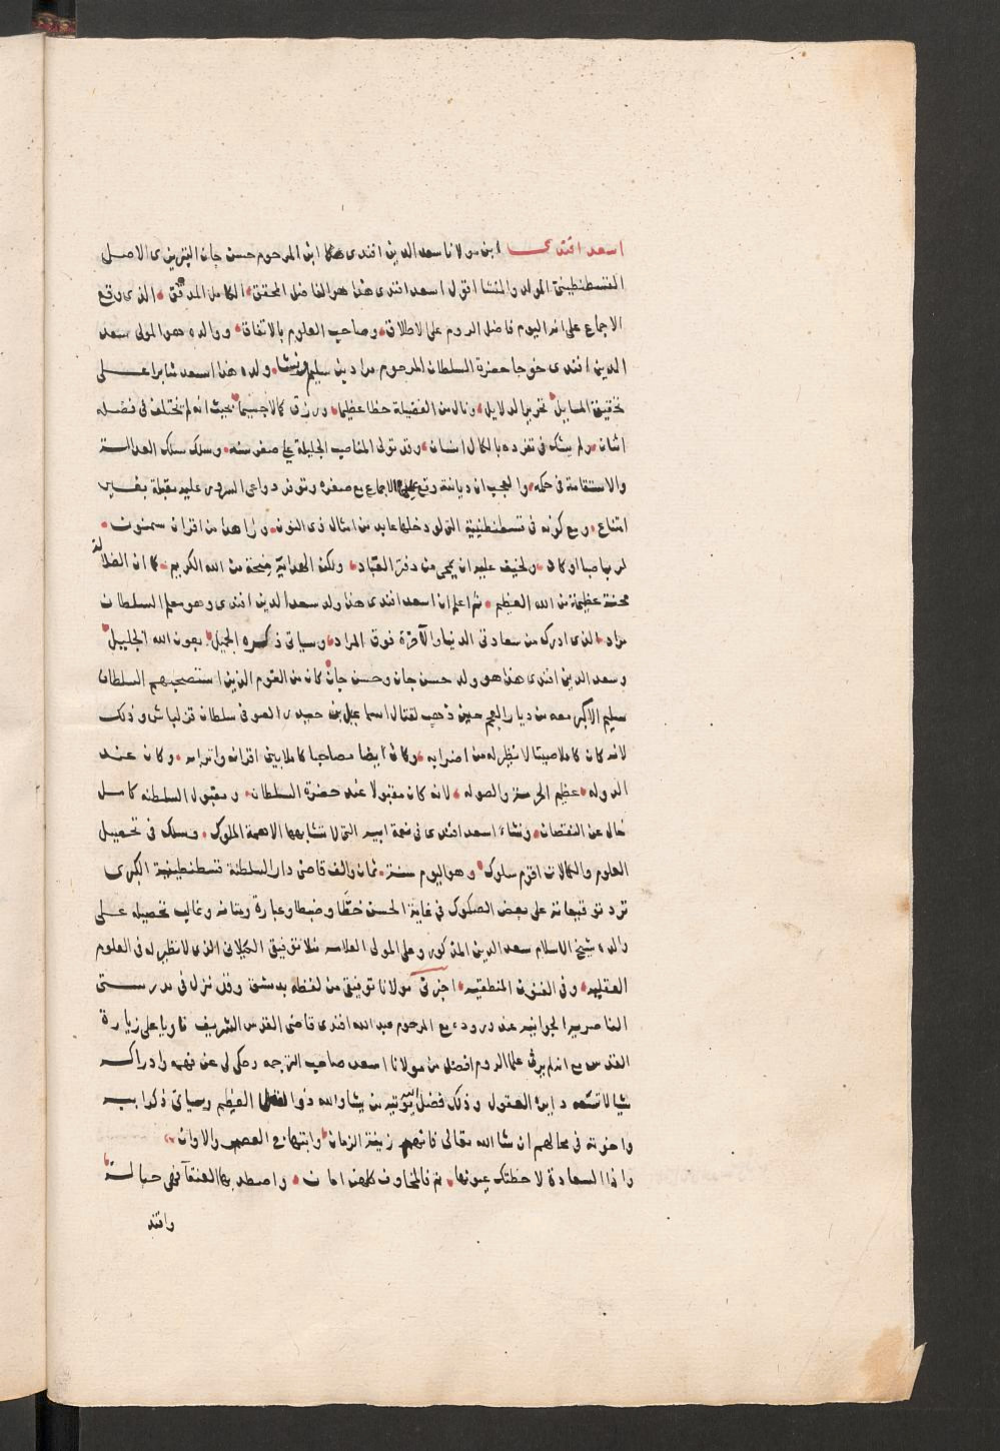 اسعد افندى ابن مولانا سعد الدين افندى هكا ابن المرحوم حسن جان التبريزى الاصل
القسطنطينى المولد والمنشا اقول اسعد افندى هذا هو الفاضل المحقق الكامل المدقق الذى وقع
الاجماع على انه اليوم فاضل الروم على الاطلاق وصاحب العلوم بالاتفاق ووالده هو المولى سعد
الدين افندى خوجا حضرة السلطان المرحوم مراد بن سليم ونشا ولده هذا اسعد مثابرا على
تحقيق المسايل تحرير الدلايل ونال من الفضيلة حظا عظيما ورزق كمالا جسيما بحيث انه لم تختلف فى فضله
اثنان ولم يشك فى تفرده بالكمال انسان وقد تولى المناصب الجليلة على صغر سنه وسلك مسلك العدالة
والاستقامة فى حكمه والعجب ان ديانته وقع عليها الاجماع مع صغره وتوفر دواعى السرور عليه مقبلة بغير
امتناع ومع كونه فى قسطنطينية التى لو دخلها عابد من امثال ذى النون وزاهد من اقران سمنون
لربما صبا او كاد ولخيف عليه ان يمحى من دفتر العباد ولكن الهداية منحة من الله الكريم كما ان الضلالة
محنة عظيمة من الله العظيم ثم اعلم ان اسعد افندى هذا ولد سعد الدين افندى وهو معلم السلطان
مراد الذى ادرك من سعادتى الدنيا والآخرة فوق المراد وسياتى ذكره الجميل بعون الله الجليل
وسعد الدين افندى هذا هو ولد حسن جان وحسن جان كان من القوم الذين استصحبهم السلطان
سليم الاكبر معه من ديار العجم حين ذهب لقتال اسماعيل بن حيدر الصوفى سلطان قزلباش وذلك
لانه كان كاملا صيتا لا نظير له من اضرابه وكان ايضا مصاحبا كاملا بين اقرانه واترابه وكان عند
الدوله عظيم الحرمة والصوله لانه كان مقبولا عند حضرة السلطان ومقبول السلطنه كامل
خال عن النقصان ونشاء اسعد افندى فى نعمة ابيه التى لا تشابهها الا نعمة الملوك وسلك فى تحصيل
العلوم والكمالات اقوم سلوك وهو اليوم سنة ثمان والف قاضى دار السلطنة قسطنطينية الكبرى
ترد توقيعاته على بعض الصكوك فى غاية الحسن خطا وضبطا وعبارة ومتانه وغالب تحصيله على
والده شيخ الاسلام سعد الدين المذكور وعلى المولى العلامه منلا توفيق الكيلانى الذى لا نظير له فى العلوم
العقليه وفى الفنون المنطقيه اخبرنى مولانا توفيق من لفظه بدمشق وقد نزل فى مدرستى
الناصريه الجوانيه عند وروده مع المرحوم عبد الله افندى قاضى القدس الشريف ناويا على زيارة
القدس مع انه لم ير فى علما الروم افضل من مولانا اسعد صاحب الترجمه وحكى لى عن فهمه وادراكه
شيا لا تسعه دايرة العقول وذلك فضل الله يؤتيه من يشا والله ذو الفضل العظيم وسياتى ذكر ابيه
واخوته فى محالهم ان شا الله تعالى فانهم زينة الزمان وابتهاج العصر والاوان
واذا السعادة لاحظتك عيونها نم فالمخاوف كلهن امان واصطد بها العنقآ فهى حبالة
واقتد